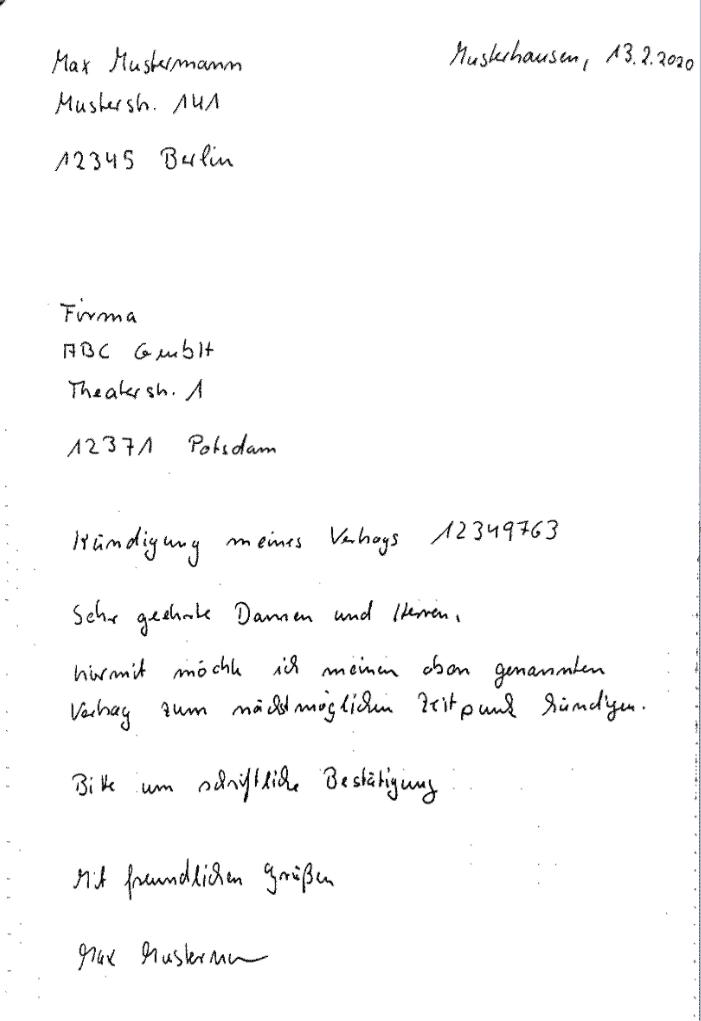 Max Mustermann
Musterhausen, 13.2.2020
Musterstr. 141
12345 Berlin
Firma
ABC GmbH
Theaterstr. 1
12371 Potsdam
Kündigung meines Vertrags 12349763
Sehr geehrte Damen und Herren,
hiermit möchte ich meinen oben genannten
Vertrag zum nächstmöglichen Zeitpunkt kündigen.
Bitte um schriftliche Bestätigung
Mit freundlichen Grüßen
Max Mustermann